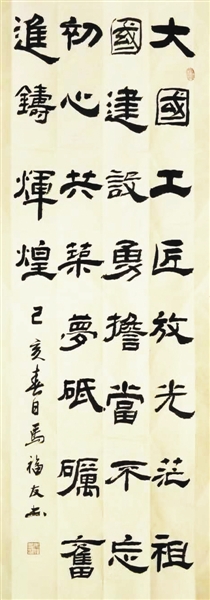 大國工匠放光茫祖
國建設勇擔當不忘
初心共築夢砥礪奮
進鑄輝煌
己亥春日馬福友書